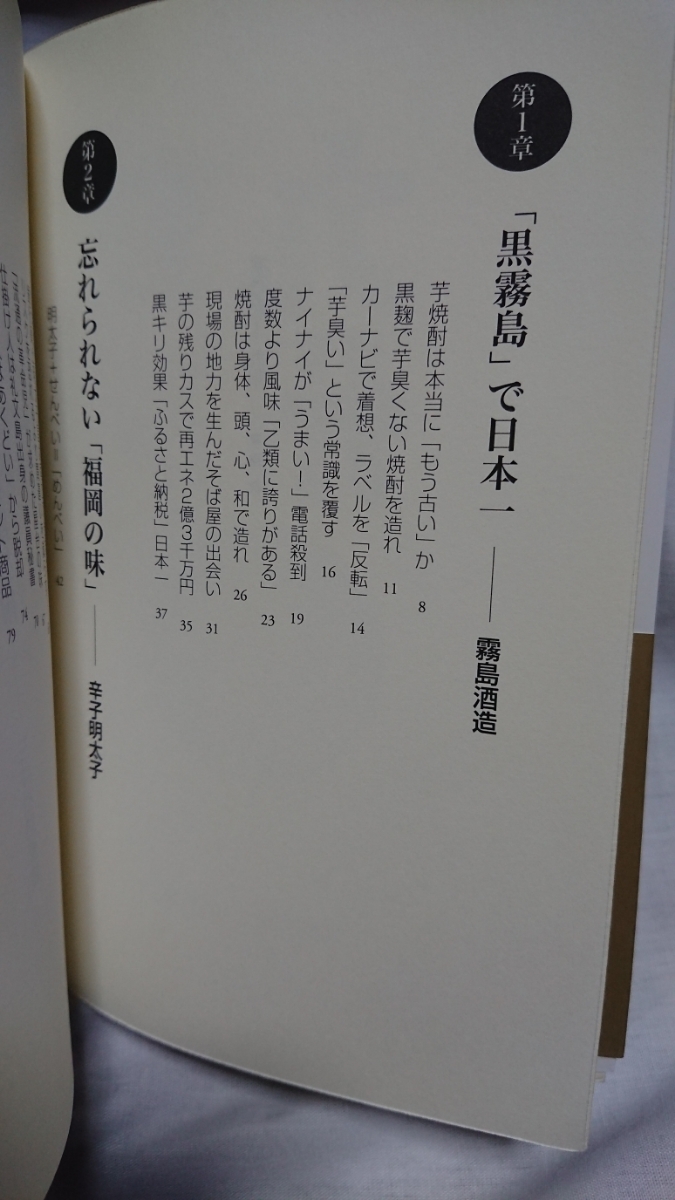 第1章
「黒霧島」で日本一――霧島酒造
芋焼酎は本当に「もう古い」か 8
黒麹で芋臭くない焼酎を造れ 11
カーナビで着想、ラベルを「反転」 14
「芋臭い」という常識を覆す 16
ナイナイが「うまい！」電話殺到 19
度数より風味「乙類に誇りがある」 23
焼酎は身体、頭、心、和で造れ 26
現場の地力を生んだそば屋の出会い 31
芋の残りカスで再エネ2億3千万円 35
黒キリ効果「ふるさと納税」日本一 37
第2章
忘れられない「福岡の味」――辛子明太子
明太子＋せんべい＝「めんべい」 42
仕掛け人は礼文島出身の 74
「あくどい」から脱却 78
ット商品 79